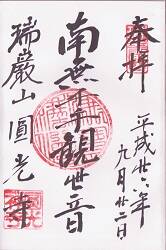 奉拝
平成廿六年
九月廿二日
南無千手観世音
瑞巌山圓光寺